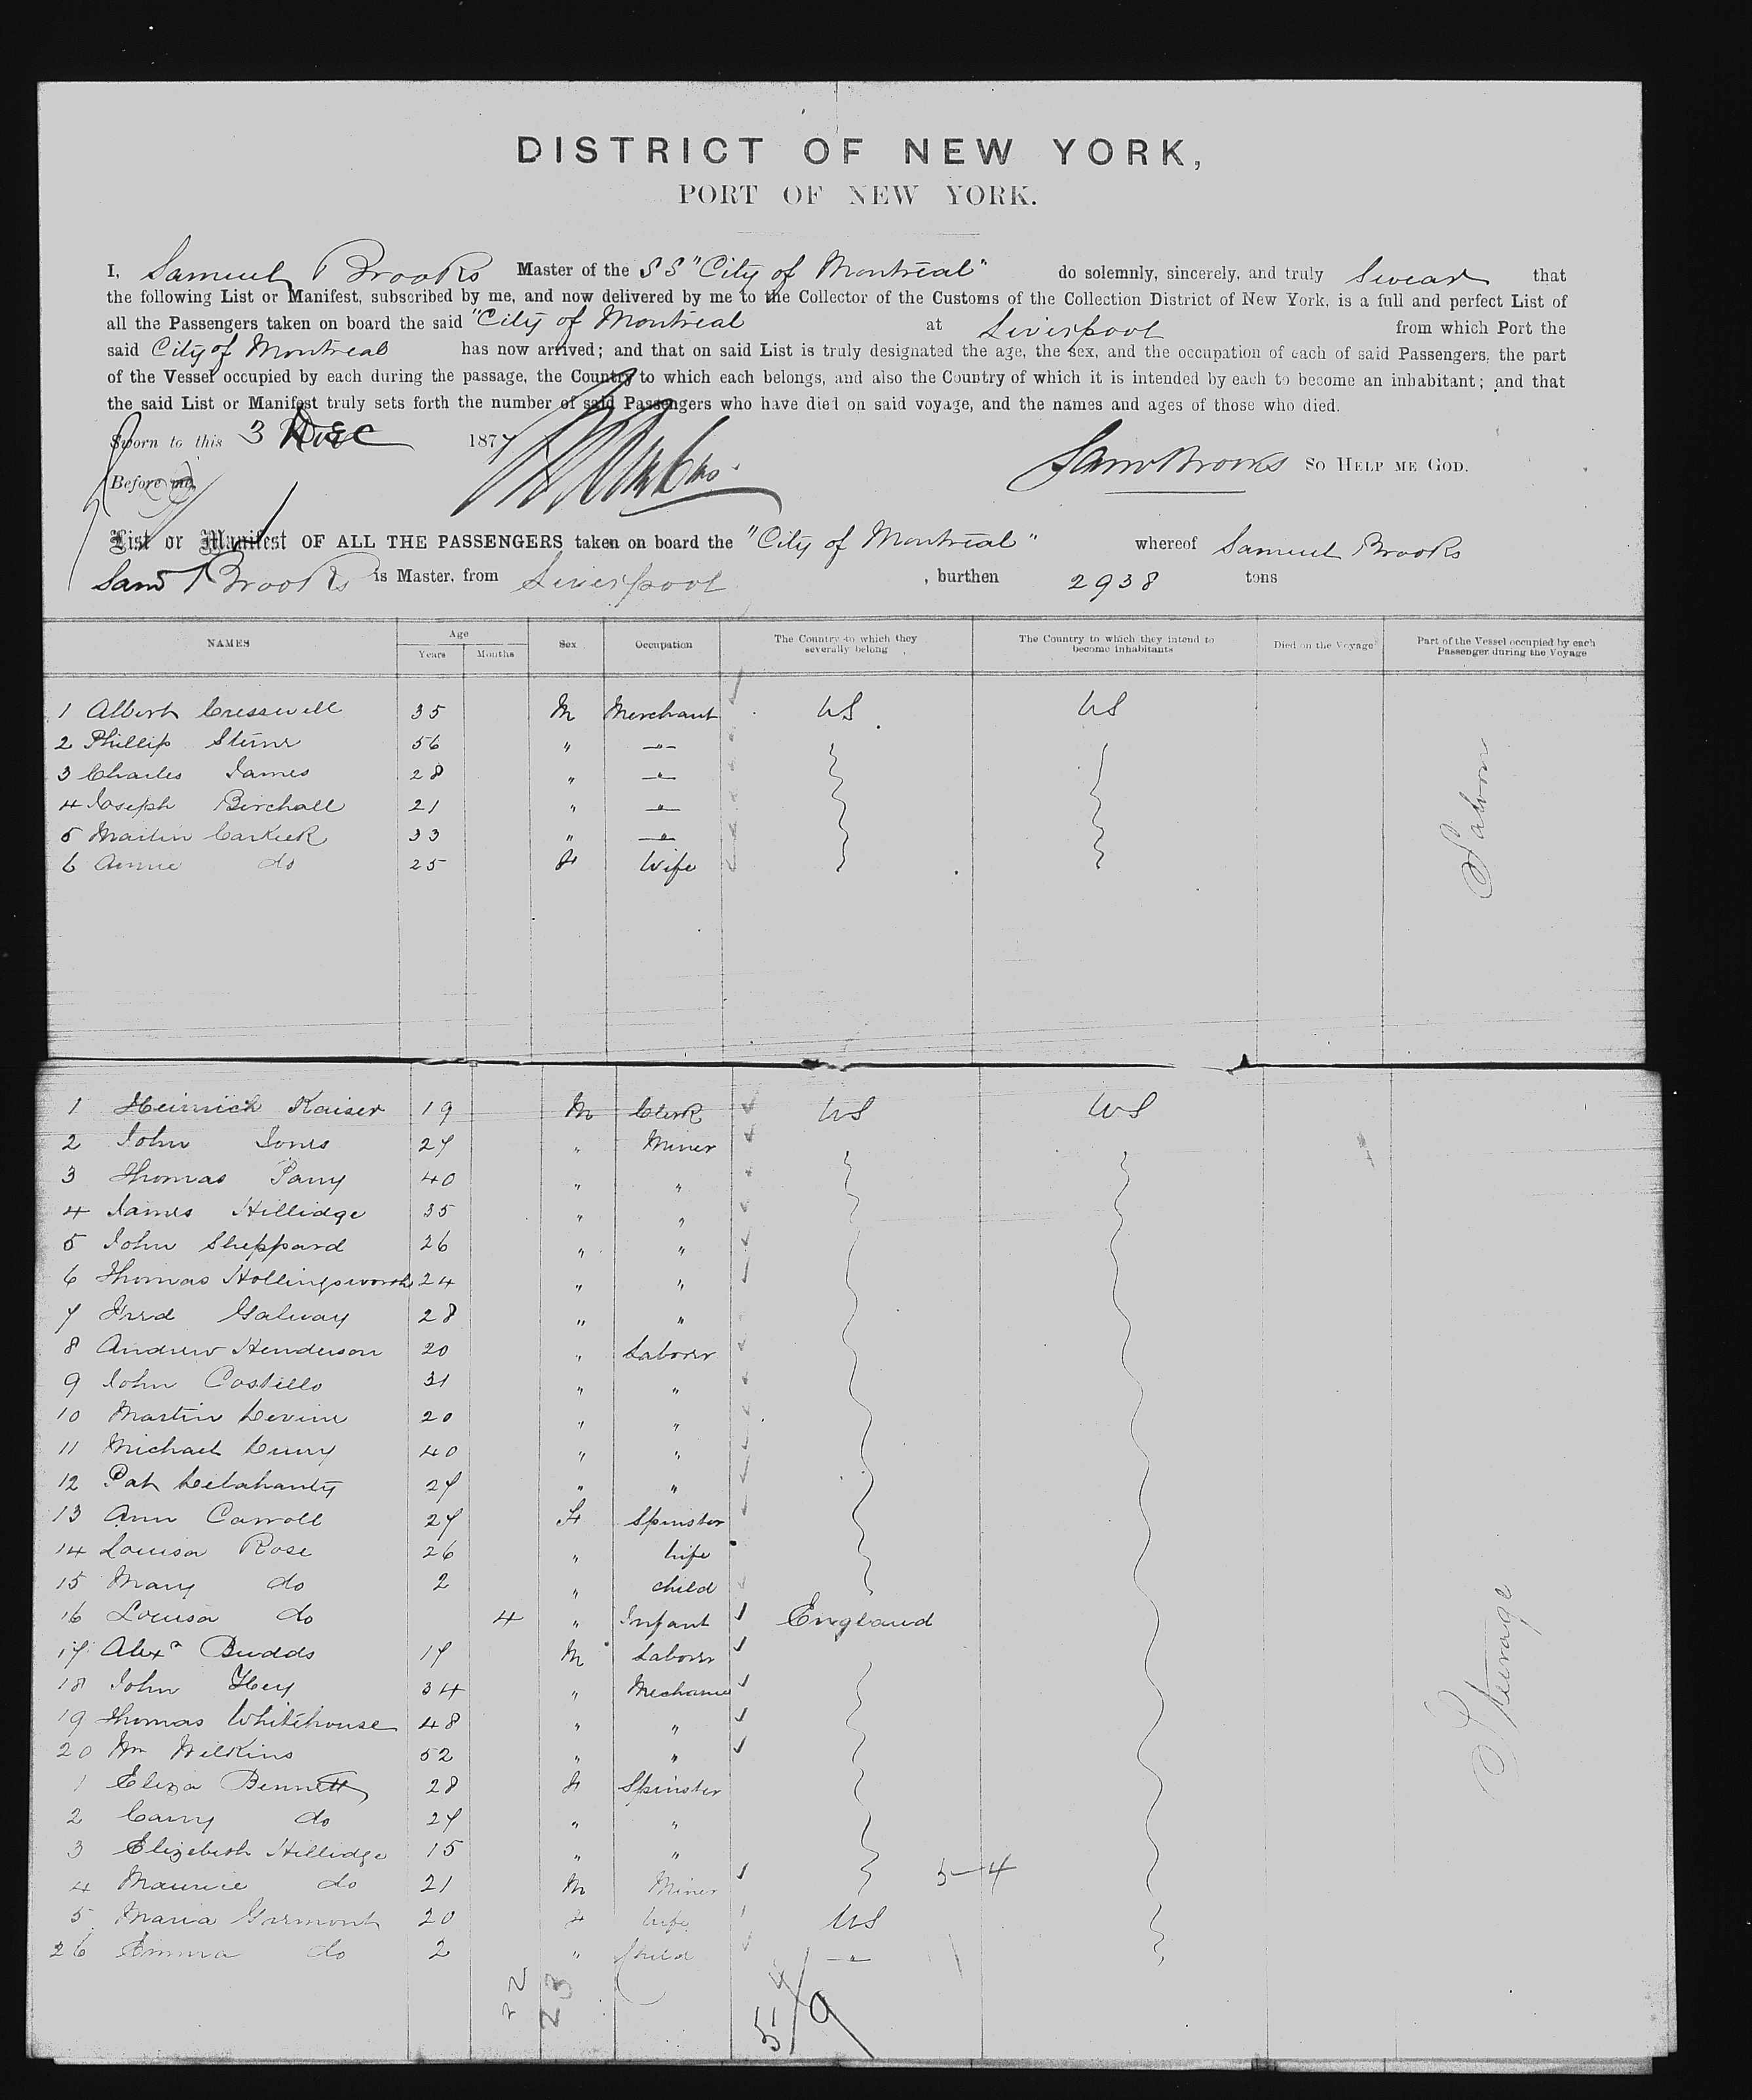 DISTRICT OF NEW YORK,
PORT OF NEW YORK.
I, Samuel Brooks Master of the SS "City of Montreal" do solemnly, sincerely, and truly Swear that
the following List or Manifest, subscribed by me, and now delivered by me to the Collector of the Customs of the Collection District of New York, is a full and perfect List of
all the Passengers taken on board the said "City of Montreal at Liverpool from which Port the
said City of Montreal has now arrived; and that on said List is truly designated the age, the sex, and the occupation of each of said Passengers, the part
of the Vessel occupied by each during the passage, the Country to which each belongs, and also the Country of which it is intended by each to become an inhabitant; and that
the said List or Manifest truly sets forth the number of said Passengers who have died on said voyage, and the names and ages of those who died.
Sworn to this 3 Dec 1877
Before me Saml Brooks SO HELP ME GOD.
List or Manifest OF ALL THE PASSENGERS taken on board the "City of Montreal" whereof Samuel Brooks
Saml Brooks is Master, from Liverpool , burthen 2938 tons
NAMES Age Years Months Sex Occupation The Country to which they severally belong The Country to which they intend to become inhabitants Died on the Voyage Part of the Vessel occupied by each Passenger during the Voyage
1 Albert Cresswell 35 M Merchant US US
2 Phillip Stone 56 " —"—
3 Charles James 28 " —"—
4 Joseph Birchall 21 " —"—
5 Martin Carkeek 33 " —"—
6 Annie do 25 F Wife
Saloon
1 Heinrich Kaiser 19 M Clerk US US
2 John Jones 27 " Miner
3 Thomas Parry 40 " "
4 James Hillidge 35 " "
5 John Sheppard 26 " "
6 Thomas Hollingsworth 24 " "
7 Fred Galway 28 " "
8 Andrew Henderson 20 " Laborer
9 John Costello 31 " "
10 Martin Devine 20 " "
11 Michael 40 " "
12 Pat Delahanty 27 " "
13 Ann Carroll 27 F Spinster
14 Louisa Rose 26 " Wife
15 Mary do 2 " child
16 Louisa do 4 " Infant England
17 Alexr Budds 17 M Laborer
18 John Hey 34 " Mechanic
19 Thomas Whitehouse 48 " "
20 Wm Wilkins 52 " "
1 Eliza Bennett 28 F Spinster
2 Carry do 27 " "
3 Elizebeth Hillidge 15 " "
4 Maurice do 21 M Miner 5-4
5 Maria Garmont 20 F Wife US
26 Emma do 2 " Child —"—
Steerage
22 23 5-4/9